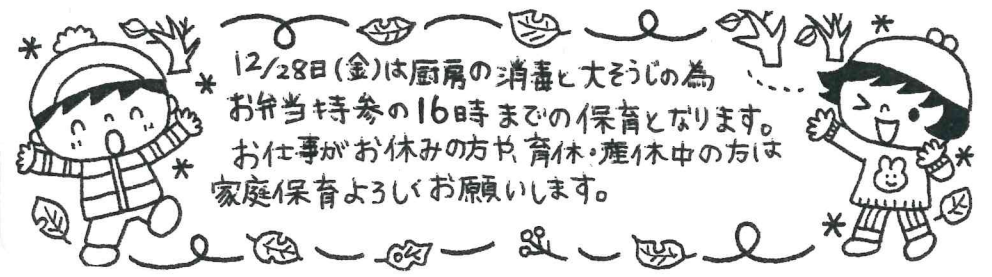 12/28日(金)は厨房の消毒と大そうじの為
お弁当持参の16時までの保育となります。
お仕事がお休みの方や、育休・産休中の方は
家庭保育よろしくお願いします。